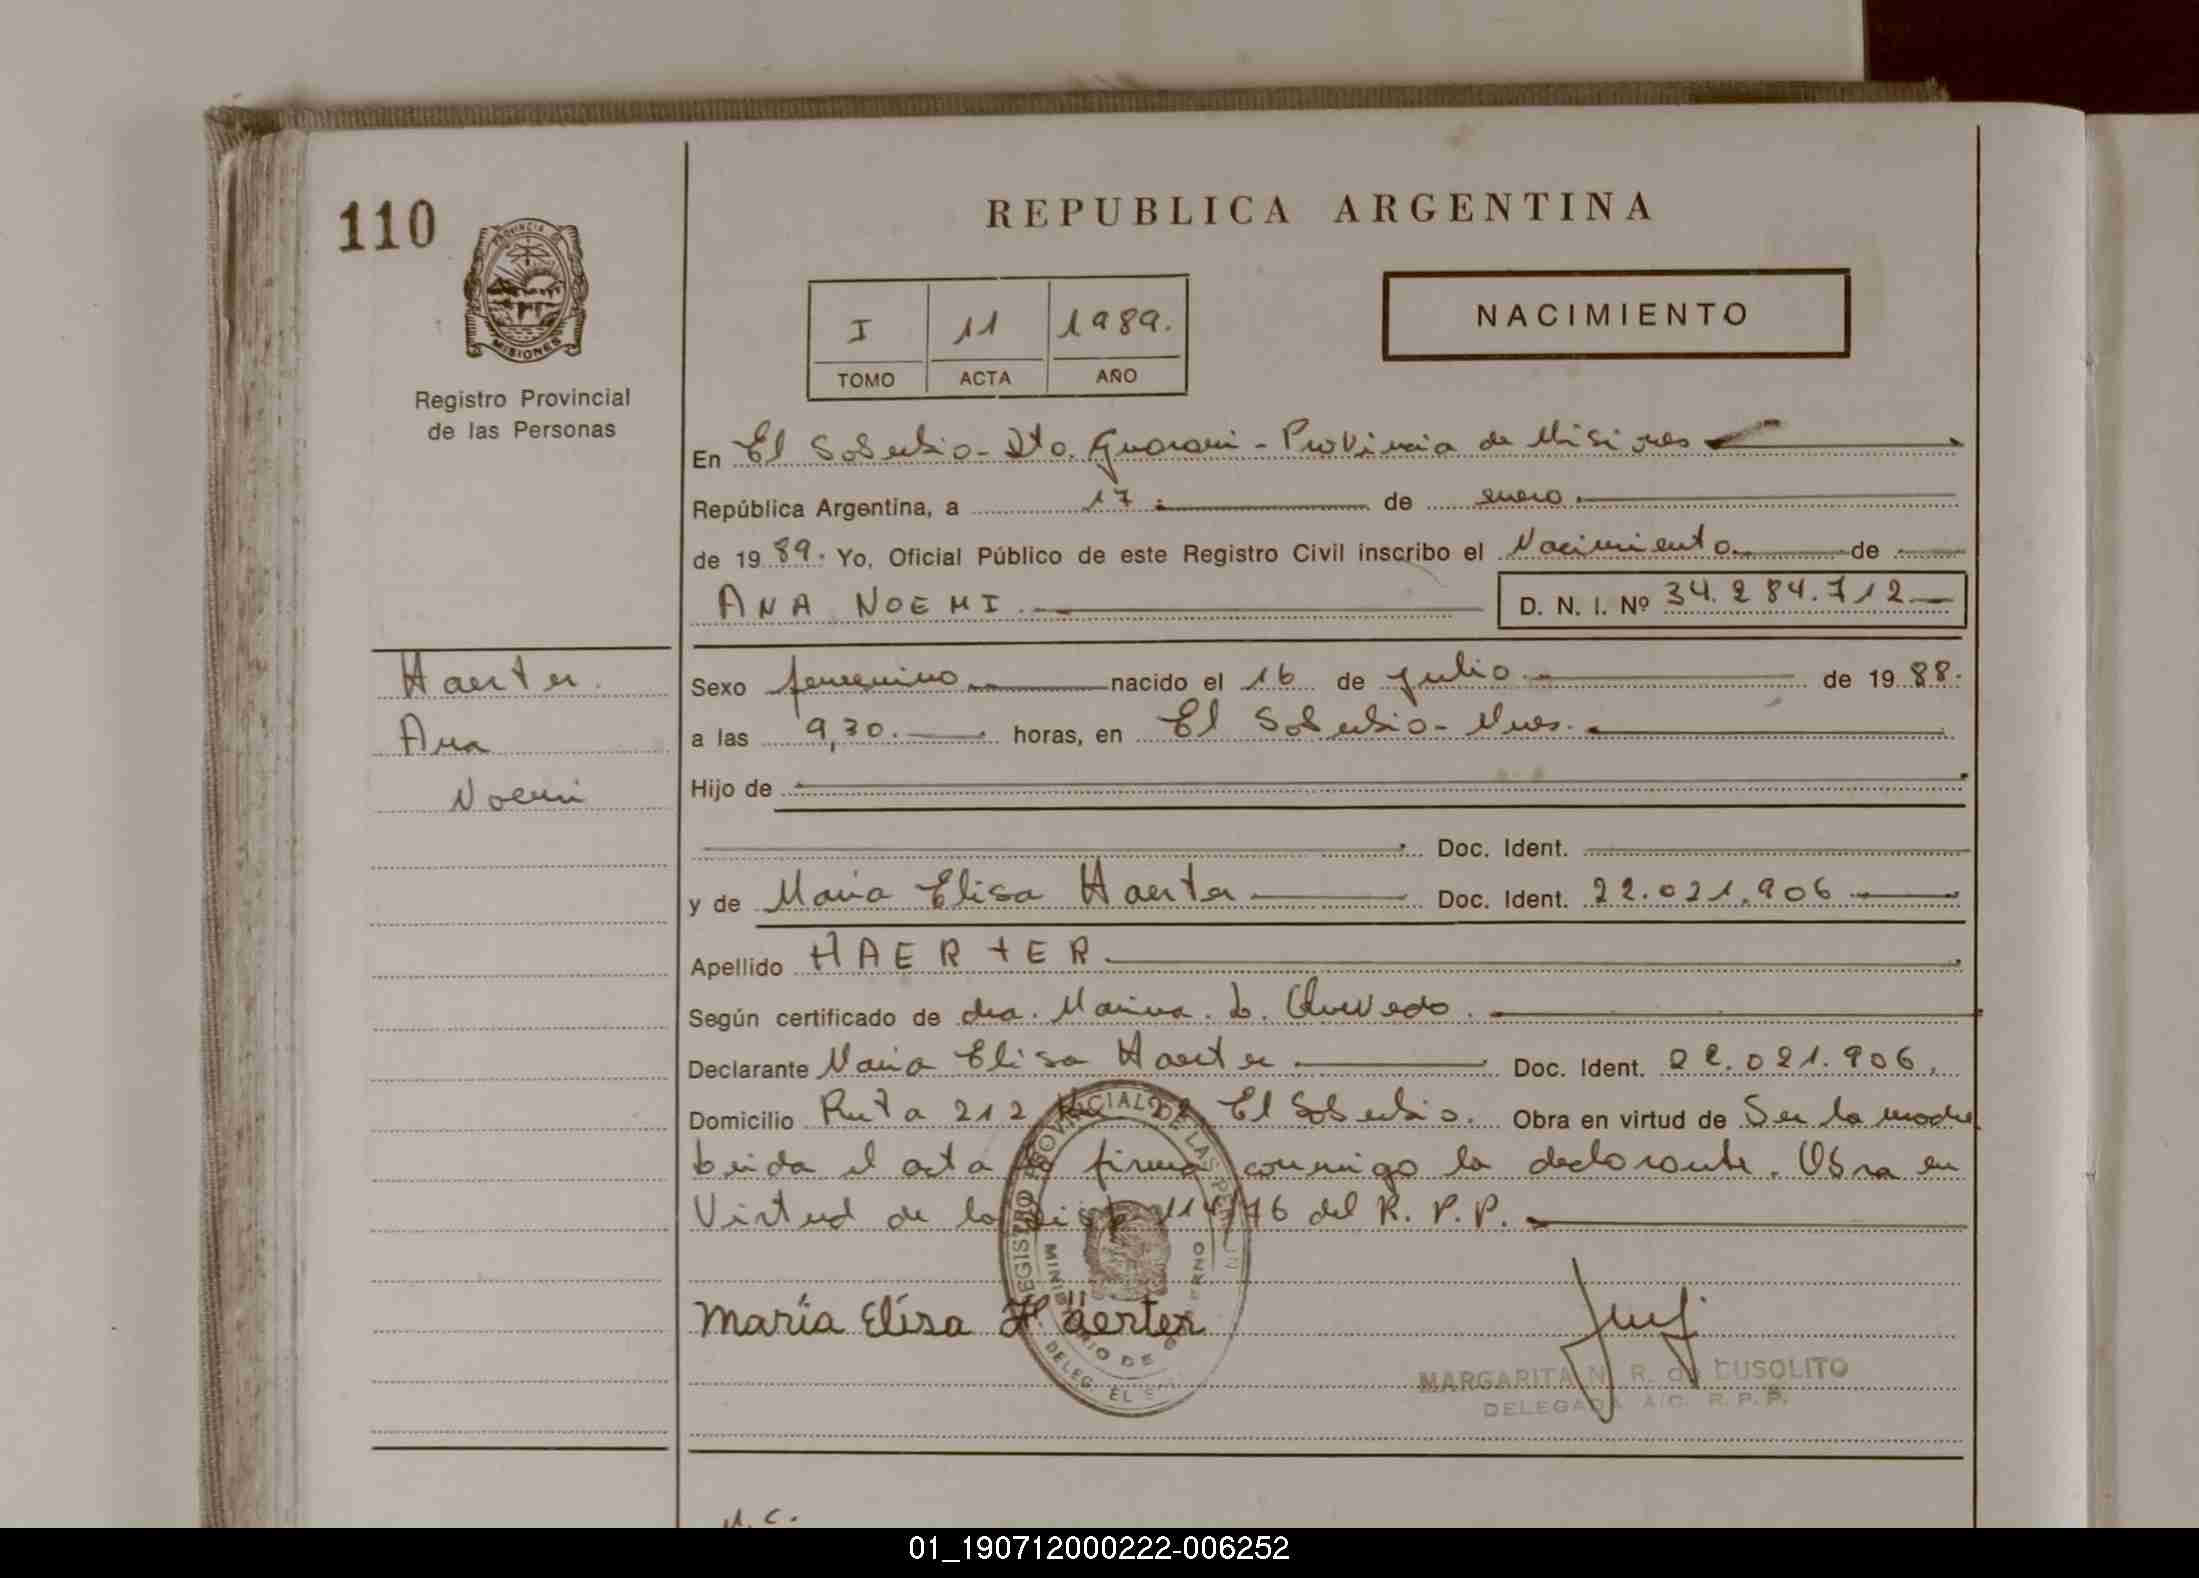 110
PROVINCIA DE
MISIONES
Registro Provincial
de las Personas
REPUBLICA ARGENTINA
I 11 1989.
TOMO ACTA AÑO
NACIMIENTO
En El Soberbio - Dto. Guarani - Provincia de Misiones
República Argentina, a 17 de enero
de 1989. Yo, Oficial Público de este Registro Civil inscribo el Nacimiento de
ANA NOEMI. D. N. I. Nº 34.284.712
Haerter
Ana
Noemi
Sexo femenino nacido el 16 de julio de 1988.
a las 9,30. horas, en El Soberbio - Mnes.
Hijo de
Doc. Ident.
y de Maria Elisa Haerter Doc. Ident. 22.021.906
Apellido HAERTER
Según certificado de dra. Marina. L. Quevedo.
Declarante Maria Elisa Haerter Doc. Ident. 22.021.906.
Domicilio Ruta 212 Km 22 El Soberbio. Obra en virtud de Ser la madre
Leida el acta la firma conmigo la declarante. Obra en
Virtud de la Disp. 114/76 del R. P. P.
REGISTRO PROVINCIAL DE LAS PERSONAS
MINISTERIO DE GOBIERNO
DELEG. EL
María Elísa Häerter
MARGARITA N. R. de CUSOLITO
DELEGADA A/C. R. P. P.
N.C.
01_190712000222-006252